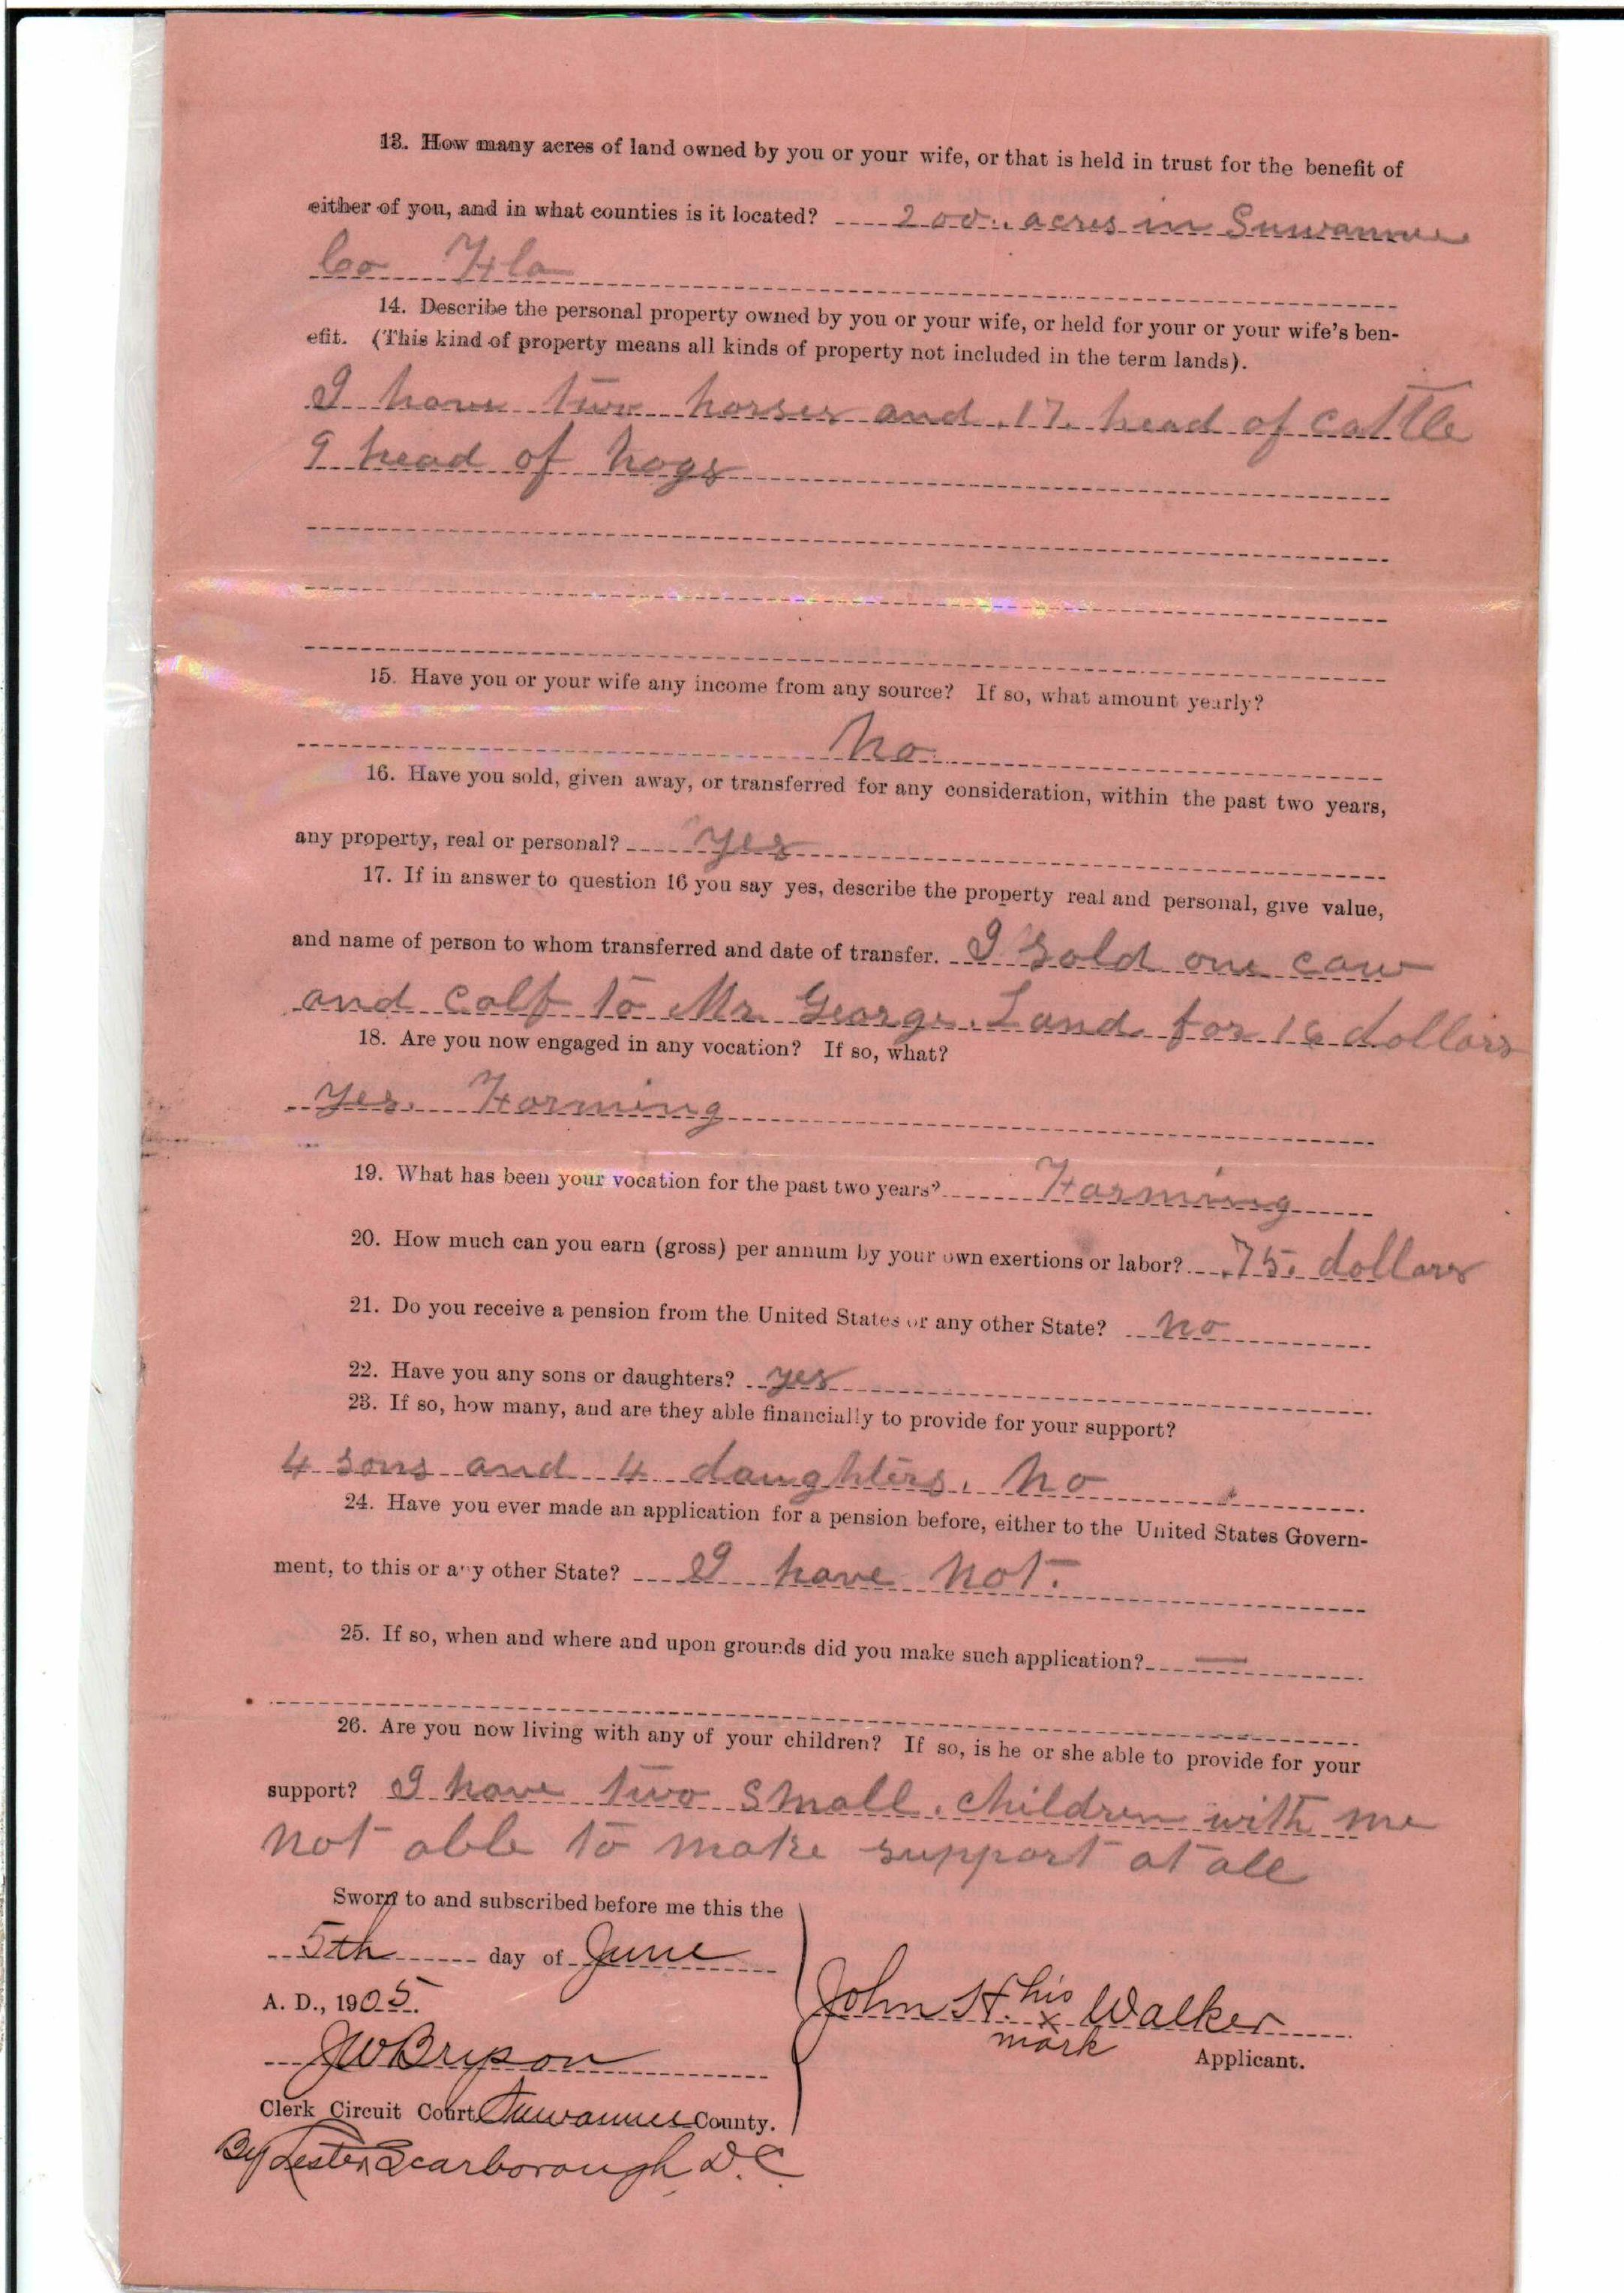 13. How many acres of land owned by you or your wife, or that is held in trust for the benefit of
either of you, and in what counties is it located? 200. acres in Suwannee
Co Fla
14. Describe the personal property owned by you or your wife, or held for your or your wife's ben-
efit. (This kind of property means all kinds of property not included in the term lands).
I have two horses and 17 head of cattle
9 head of hogs
15. Have you or your wife any income from any source? If so, what amount yearly?
No
16. Have you sold, given away, or transferred for any consideration, within the past two years,
any property, real or personal? Yes
17. If in answer to question 16 you say yes, describe the property real and personal, give value,
and name of person to whom transferred and date of transfer. I sold one cow
and calf to Mr. George Land for 16 dollars
18. Are you now engaged in any vocation? If so, what?
Yes. Farming
19. What has been your vocation for the past two years? Farming
20. How much can you earn (gross) per annum by your own exertions or labor? 75. dollars
21. Do you receive a pension from the United States or any other State? No
22. Have you any sons or daughters? yes
23. If so, how many, and are they able financially to provide for your support?
4 sons and 4 daughters. No
24. Have you ever made an application for a pension before, either to the United States Govern-
ment, to this or any other State? I have not.
25. If so, when and where and upon grounds did you make such application? —
26. Are you now living with any of your children? If so, is he or she able to provide for your
support? I have two small children with me
not able to make support at all
Sworn to and subscribed before me this the
5th day of June
A. D., 1905.
John H. his x mark Walker
Applicant.
JW Bryson
Clerk Circuit Court Suwannee County.
By Lester Scarborough D.C.